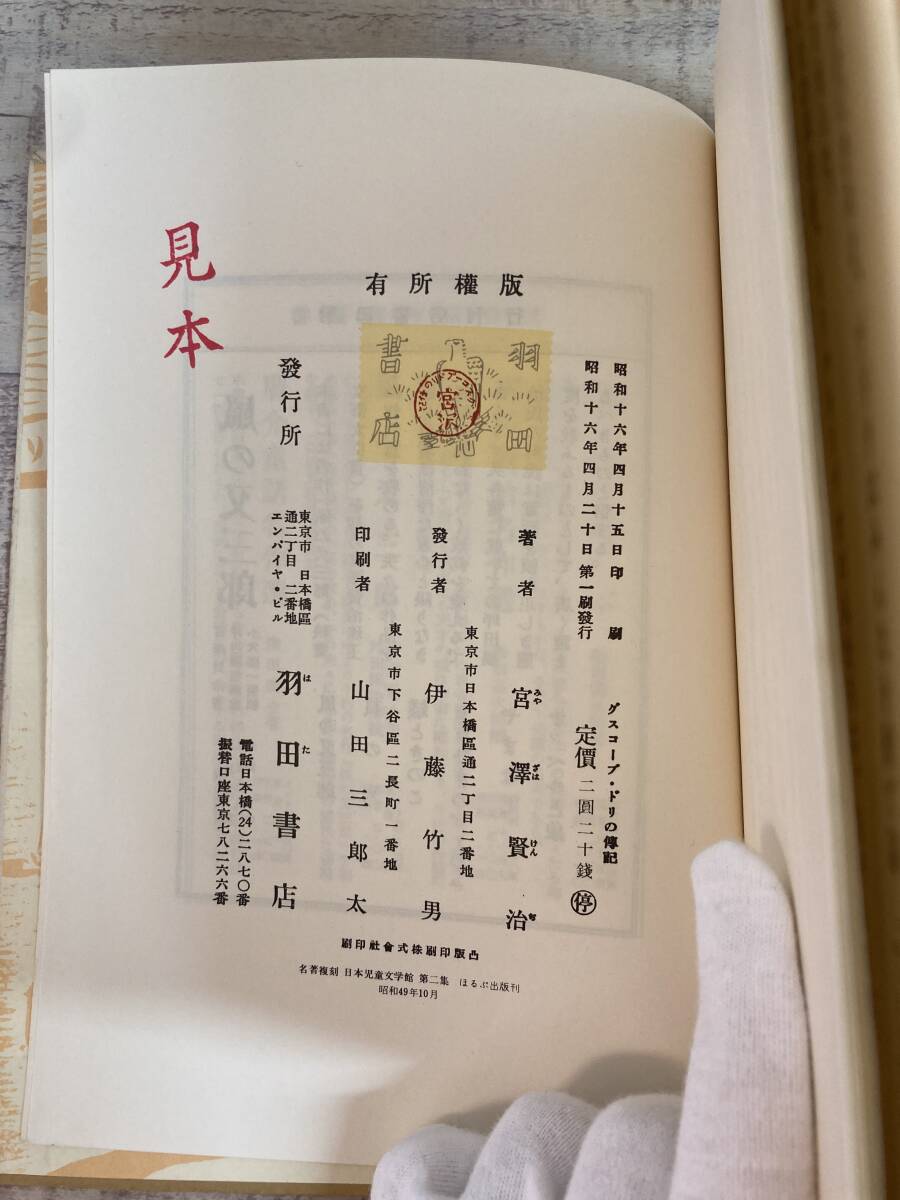 版權所有
昭和十六年四月十五日印刷
昭和十六年四月二十日第一刷發行
グスコーブ・ドリの傳記
定價 二圓二十錢 停
羽田
書店
宮沢
著者
宮澤賢治
みや ざは けん ぢ
東京市日本橋區通二丁目二番地
發行者
伊藤竹男
東京市下谷區二長町一番地
印刷者
山田三郎太
發行所
東京市 日本橋區
通二丁目 二番地
エンパイヤ・ビル
羽田書店
は た
電話日本橋(24)二八七〇番
振替口座東京七八二六六番
見本
凸版印刷株式會社印刷
名著複刻 日本児童文学館 第二集 ほるぷ出版刊
昭和49年10月
風の又三郎